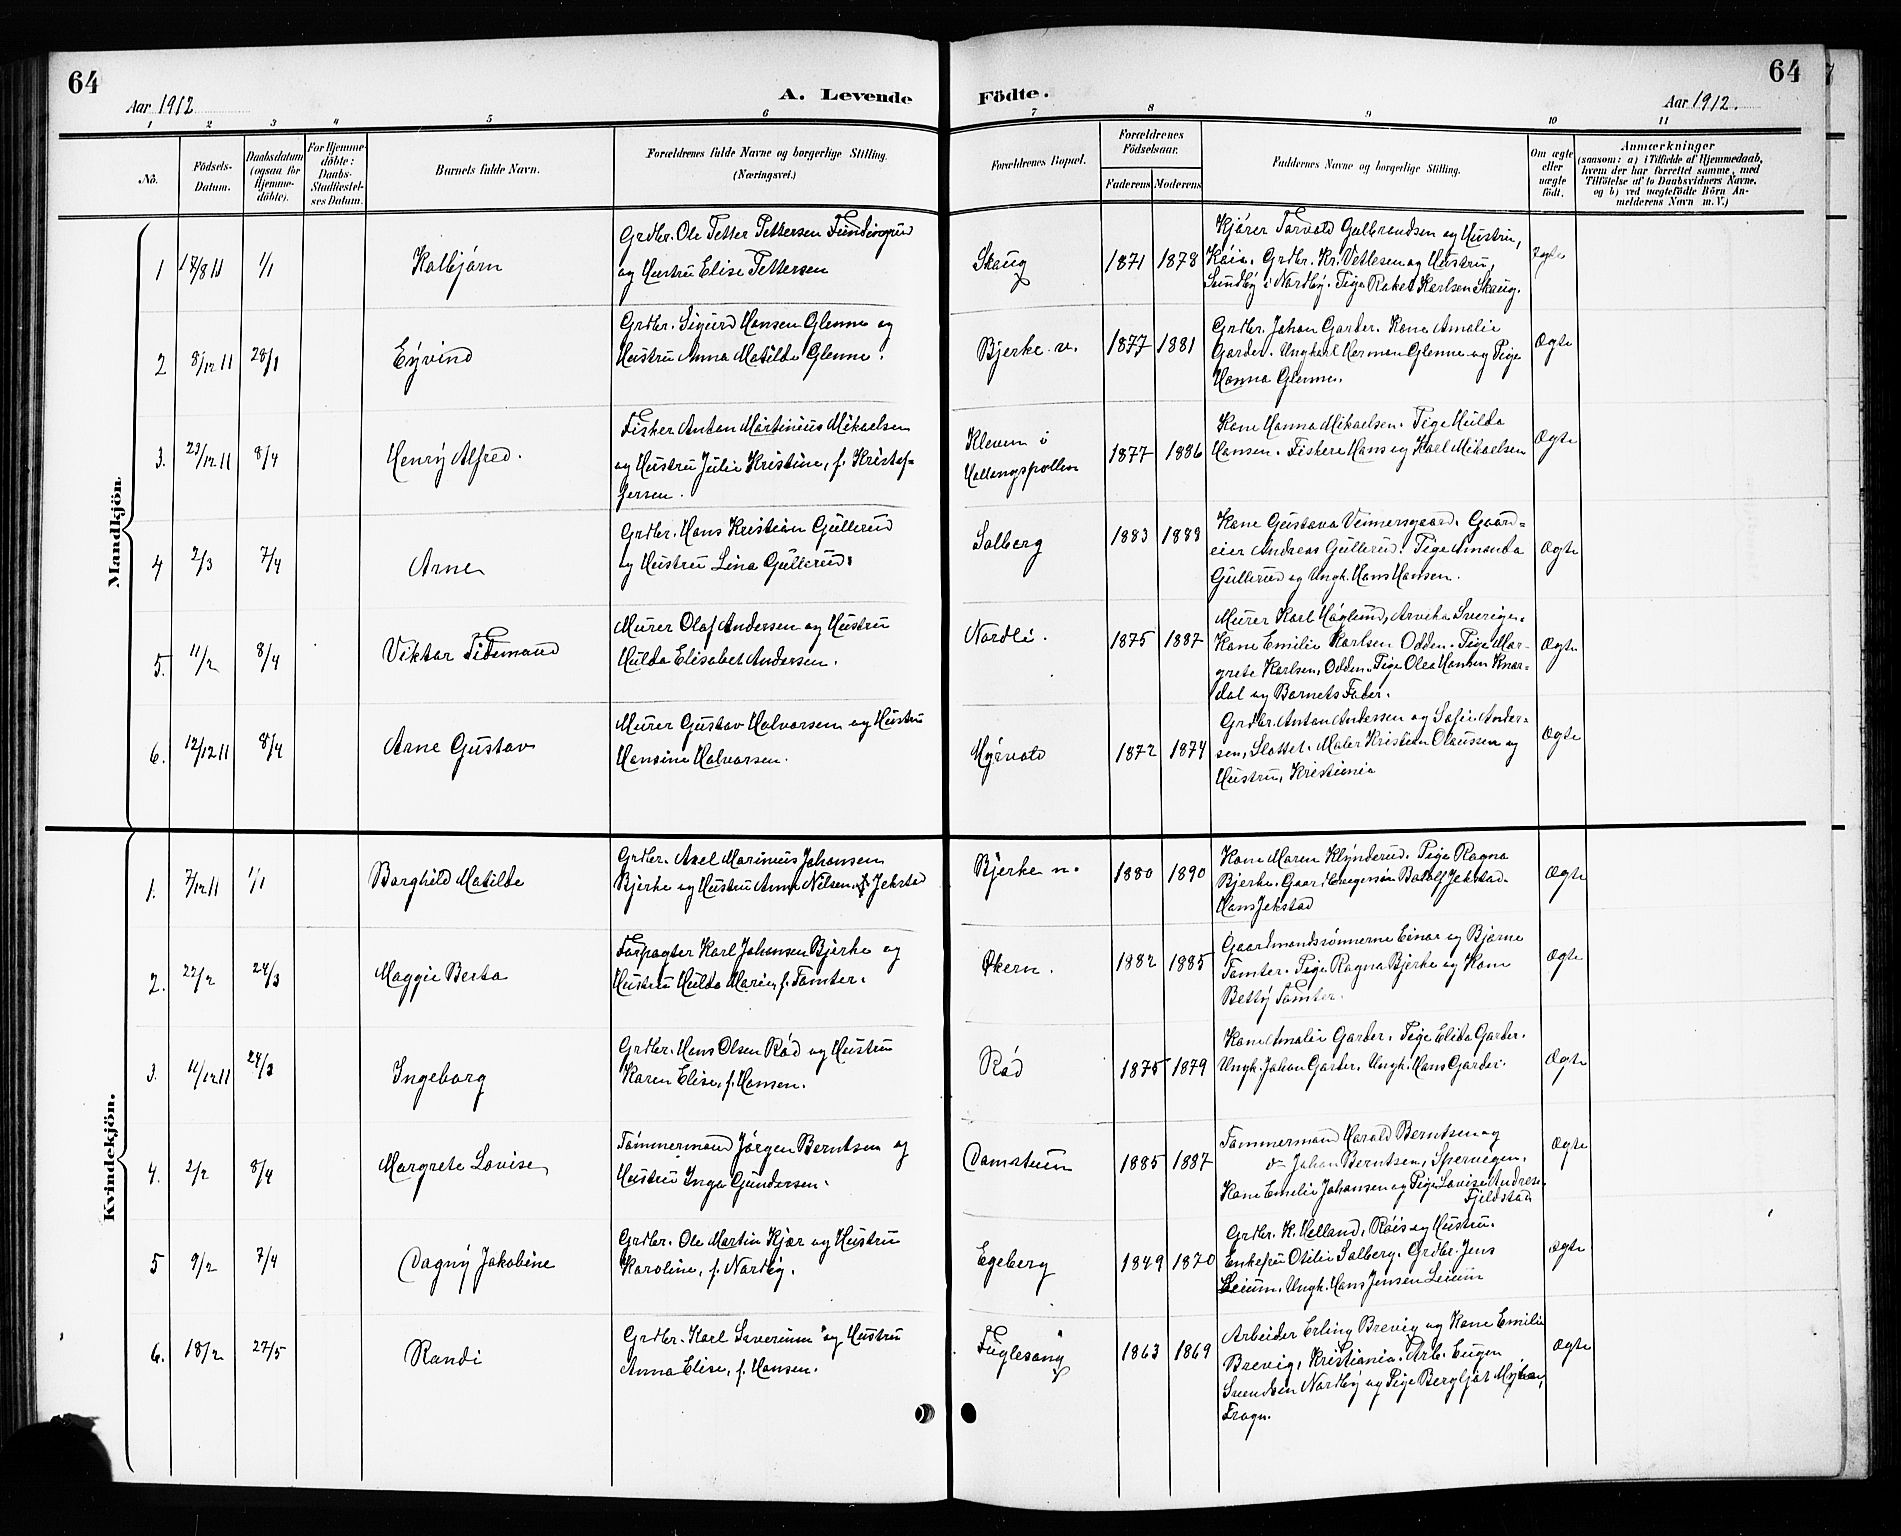 64
64
Aar 1912
A. Levende Födte.
Aar 1912.
1 2 3 4 5 6 7 8 9 10 11
No.
Födsels-Datum.
Daabsdatum (ogsaa for Hjemme-döbte).
For Hjemme-döbte: Daabs-Stadfæstel-ses Datum.
Barnets fulde Navn.
Forældrenes fulde Navne og borgerlige Stilling. (Næringsvei.)
Forældrenes Bopæl.
Forældrenes Födselsaar.
Faderens Moderens
Faddernes Navne og borgerlige Stilling.
Om ægte eller uægte födt.
Anmærkninger
(saasom: a) i Tilfælde af Hjemmedaab, hvem der har forrettet samme, med Tilföielse af to Daabsvidners Navne, og b) ved uægtefödte Börn An-melderens Navn m. V.)
Mandkjön.
1 17/8 11 1/1 Kolbjørn
Grdbr. Ole Petter Pettersen Fundingrud
og Hustru Elise Pettersen
Skaug 1871 1878
Kjører Torvald Gulbrandsen og Hustru,
Røis. Grdbr. Kr. Vetlesen og Hustru,
Sundby i Nordby. Pige Rakel Karlsen Skaug.
Ægte
2 8/12 11 28/1 Eyvind
Grdbr. Sigurd Hansen Glenne og
Hustru Anna Matilde Glenne.
Bjerke v. 1877 1881
Grdbr. Johan Garder. Kone Amalie
Garder. Ungkarl Herman Glenne og Pige
Hanna Glenne.
Ægte
3. 23/12 11 8/4 Henry Alfred.
Fisker Anton Martinius Mikaelsen
og Hustru Julie Kristine, f. Kristof-
fersen.
Kleven i
Hallangspollen 1877 1886
Kone Hanna Mikaelsen. Pige Hulda
Hansen. Fiskere Hans og Karl Mikaelsen
Ægte
4 2/3 7/4 Arne
Grdbr. Hans Kristian Gullerud
og Hustru Lina Gullerud.
Solberg 1883 1883
Kone Gustava Vinnersgaard. Gaard-
eier Andreas Gullerud. Pige Amanda
Gullerud og Ungk. Hans Hansen.
Ægte
5. 11/2 8/4 Viktor Tidemand
Murer Olaf Andersen og Hustru
Hulda Elisabet Andersen.
Nordli. 1875 1887
Murer Karl Höglund, Arvika Sverige.
Kone Emilie Karlsen Odden. Pige Mar-
grete Karlsen, Odden. Pige Olea Hansen Knar-
dal og Barnets Fader.
Ægte
6. 12/12 11 8/4 Arne Gustav
Murer Gustav Halvorsen og Hustru
Hansine Halvorsen.
Myrvold 1872 1874
Grdbr. Anton Andersen og Sofie Ander-
sen, Slottet. Maler Kristian Olaussen og
Hustru, Kristiania
Ægte
Kvindekjön.
1. 7/12 11 1/1 Borghild Matilde
Grdbr. Axel Marinius Johansen
Bjerke og Hustru Anna Nilsen, f. Jekstad
Bjerke n. 1880 1890
Kone Maren Klynderud. Pige Ragna
Bjerke. Bodolf Jekstad.
Hans Jekstad
Ægte
2. 22/2 24/3 Maggie Berta
Forpagter Karl Johansen Bjerke og
Hustru Hulda Marie, f. Tomter.
Økern. 1882 1885
Gaardmandssønnerne Einar og Bjarne
Tomter. Pige Ragna Bjerke og Kone
Betsy Tomter.
Ægte
3. 11/12 11 24/3 Ingeborg
Grdbr. Hans Olsen Rød og Hustru
Karen Elise, f. Hansen.
Rød 1875 1879
Kone Amalie Garder. Pige Elida Garder.
Ungk. Johan Garder. Ungk. Hans Garder.
Ægte
4. 2/2 8/4 Margrete Lovise
Tømmermand Jørgen Berntsen og
Hustru Inga Gundersen.
Damstuen 1885 1887
Tømmermand Harald Berntsen og
do Johan Berntsen, Spervegen.
Kone Emilie Johansen og Pige Lovise Andresen
Fjeldstad
Ægte
5 9/2 7/4 Dagny Jakobine
Grdbr. Ole Martin Kjær og Hustru
Karoline, f. Nordby.
Egeberg 1849 1870
Grdbr. K. Helland, Røis og Hustru.
Enkefru Otilie Solberg. Grdbr. Jens
Leium. Ungk. Hans Jensen Leium
Ægte
6. 18/2 27/5 Randi
Grdbr. Karl Severinsen og Hustru
Anna Elise, f. Hansen.
Fuglesang 1863 1869
Arbeider Erling Brevig og Kone Emilie
Brevig, Kristiania. Arb. Eugen
Svendsen Nordby og Pige Bergljot
Frogn.
Ægte